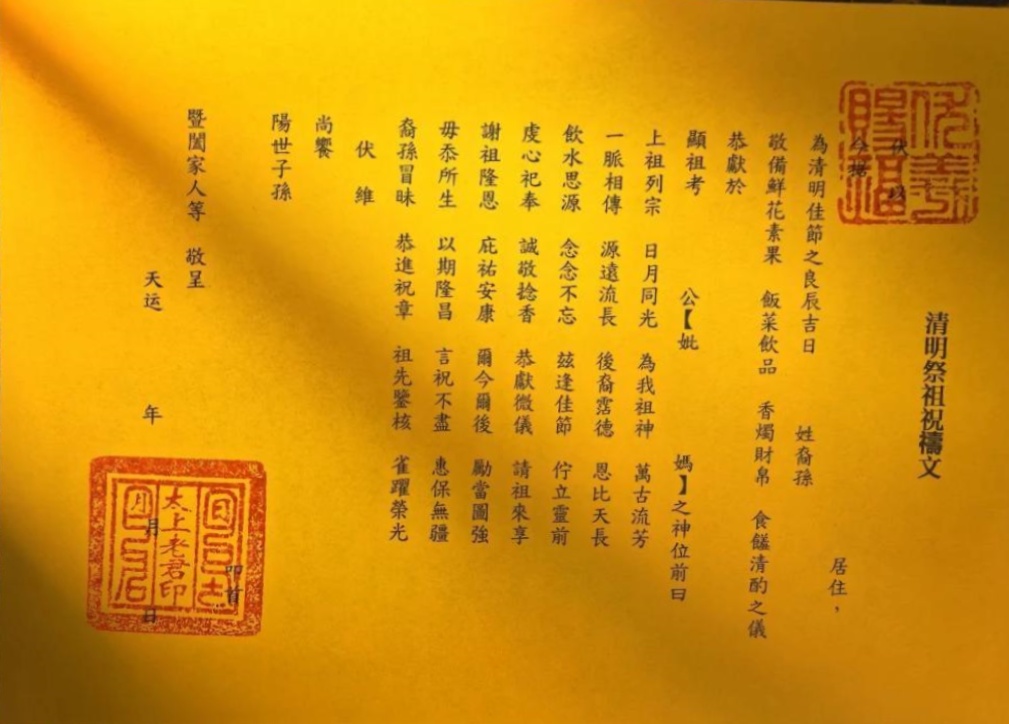 伏羲賜福
清明祭祖祝禱文
伏 以
今據 居住，
為清明佳節之良辰吉日 姓裔孫
敬備鮮花素果 飯菜飲品 香燭財帛 食饈清酌之儀
恭獻於
顯祖考 公【妣 媽】之神位前曰
上祖列宗 日月同光 為我祖神 萬古流芳
一脈相傳 源遠流長 後裔霑德 恩比天長
飲水思源 念念不忘 茲逢佳節 佇立靈前
虔心祀奉 誠敬捻香 恭獻微儀 請祖來享
謝祖隆恩 庇祐安康 爾今爾後 勵當圖強
毋忝所生 以期隆昌 言祝不盡 惠保無疆
裔孫冒昧 恭進祝章 祖先鑒核 雀躍榮光
伏 維
尚饗
陽世子孫 叩首
暨闔家人等 敬呈
天运 年 月 日
太上老君印